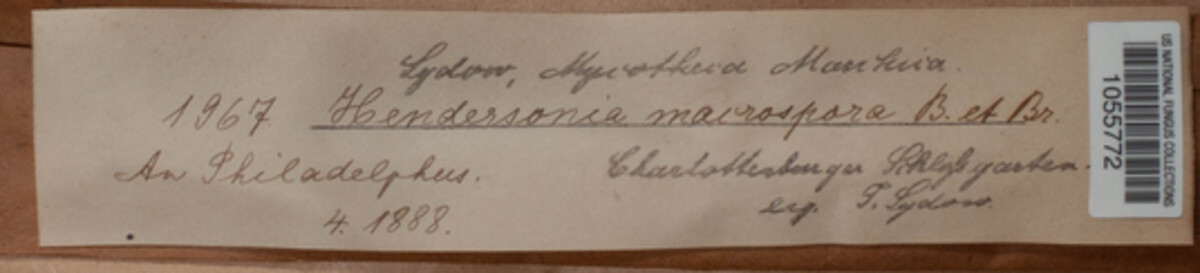 Sydow, Mycotheca Marchica.
1967. Hendersonia macrospora B. et Br.
An Philadelphus.
4. 1888.
Charlottenburger Schloßgarten.
P. Sydow.
US NATIONAL FUNGUS COLLECTIONS
1055772